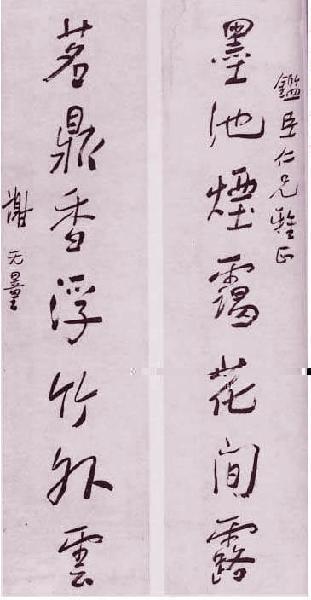 鑑臣仁兄雅正
墨池煙靄花間露
茗鼎香浮竹外雲
謝无量